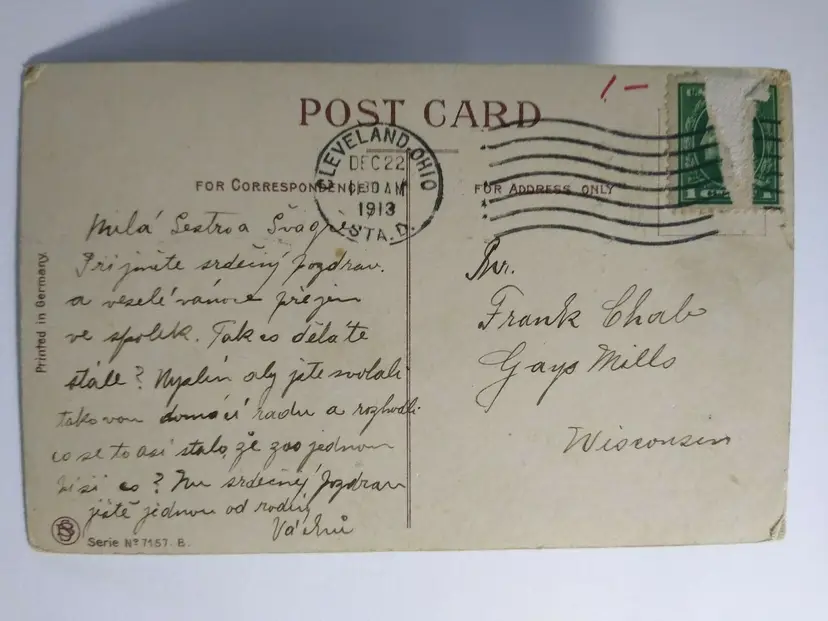 POST CARD
CLEVELAND, OHIO
DEC 22
1913
STA.
FOR CORRESPONDENCE
FOR ADDRESS ONLY
Printed in Germany.
Milá Sestro a
Prijměte srdečný pozdrav.
a veselé vánoce přejem
ve spolek. Tak co děláte
stále? Myslím aby jste svolali
takovou domácí radu a rozhodli
co se to asi stalo že zoo jednou
co? Nu srdečný pozdrav
ještě jednou od rodiny
Mr.
Frank Chab
Gays Mills
Wisconsin
Serie Nº 7157. B.